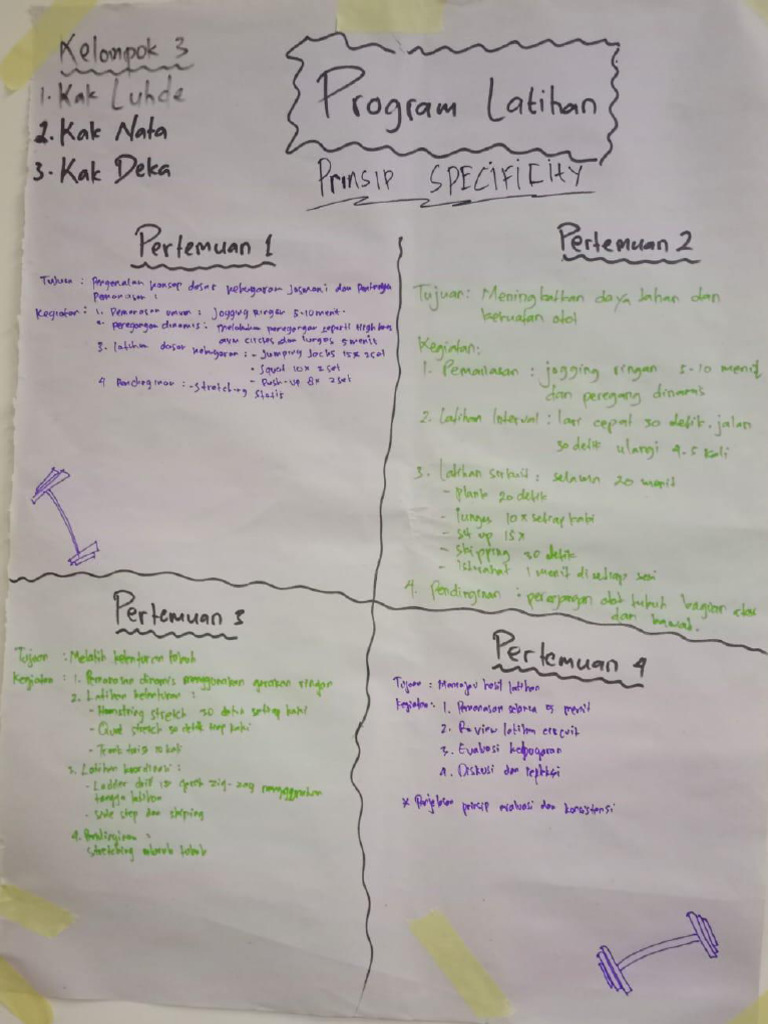 Kelompok 3
1. Kak Luhde
2. Kak Nata
3. Kak Deka
Program Latihan
Prinsip SPECIFICITY
Pertemuan 1
Tujuan : Pengenalan konsep dasar kebugaran Jasmani dan Pentingnya
Pemanasan :
Kegiatan : 1. Pemanasan umum : Jogging Ringan 5-10 menit.
2. peregangan dinamis : melakukan peregangan seperti High knes
arm circles dan lunges 5 menit
3. Latihan dasar kebugaran : - Jumping Jacks 15x 2 set
- Squat 10x 2 set
- Push-up 8x 2 set
4. Pendinginan : - Stretching
Statis
Pertemuan 2
Tujuan : Meningkatkan daya tahan dan
kekuatan otot
Kegiatan :
1. Pemanasan : jogging ringan 5-10 menit
dan peregang dinamis
2. Latihan Interval : lari cepat 30 detik. jalan
30 detik ulangi 4-5 kali
3. Latihan sirkuit : selama 20 menit
- Plank 20 detik
- lunges 10x setiap kaki
- sit up 15x
- skipping 30 detik
- Istirahat 1 menit di setiap sesi
4. Pendinginan : peregangan otot tubuh bagian atas
dan bawah.
Pertemuan 3
Tujuan : Melatih kelenturan tubuh
Kegiatan : 1. Pemanasan dinamis menggunakan gerakan ringan
2. Latihan kelenturan :
- Hamstring stretch 30 detik setiap kaki
- Quad stretch 30 detik tiap kaki
3. Latihan koordinasi :
- Ladder drill zig-zag menggunakan
tangga latihan
- side step dan skiping
4. Pendinginan :
stretching seluruh tubuh
Pertemuan 4
Tujuan : Meninjau hasil latihan
Kegiatan : 1. Pemanasan selama 5 menit
2. Review latihan circuit
3. Evaluasi kebugaran
4. Diskusi dan refleksi
* Penjelasan prinsip evaluasi dan konsistensi